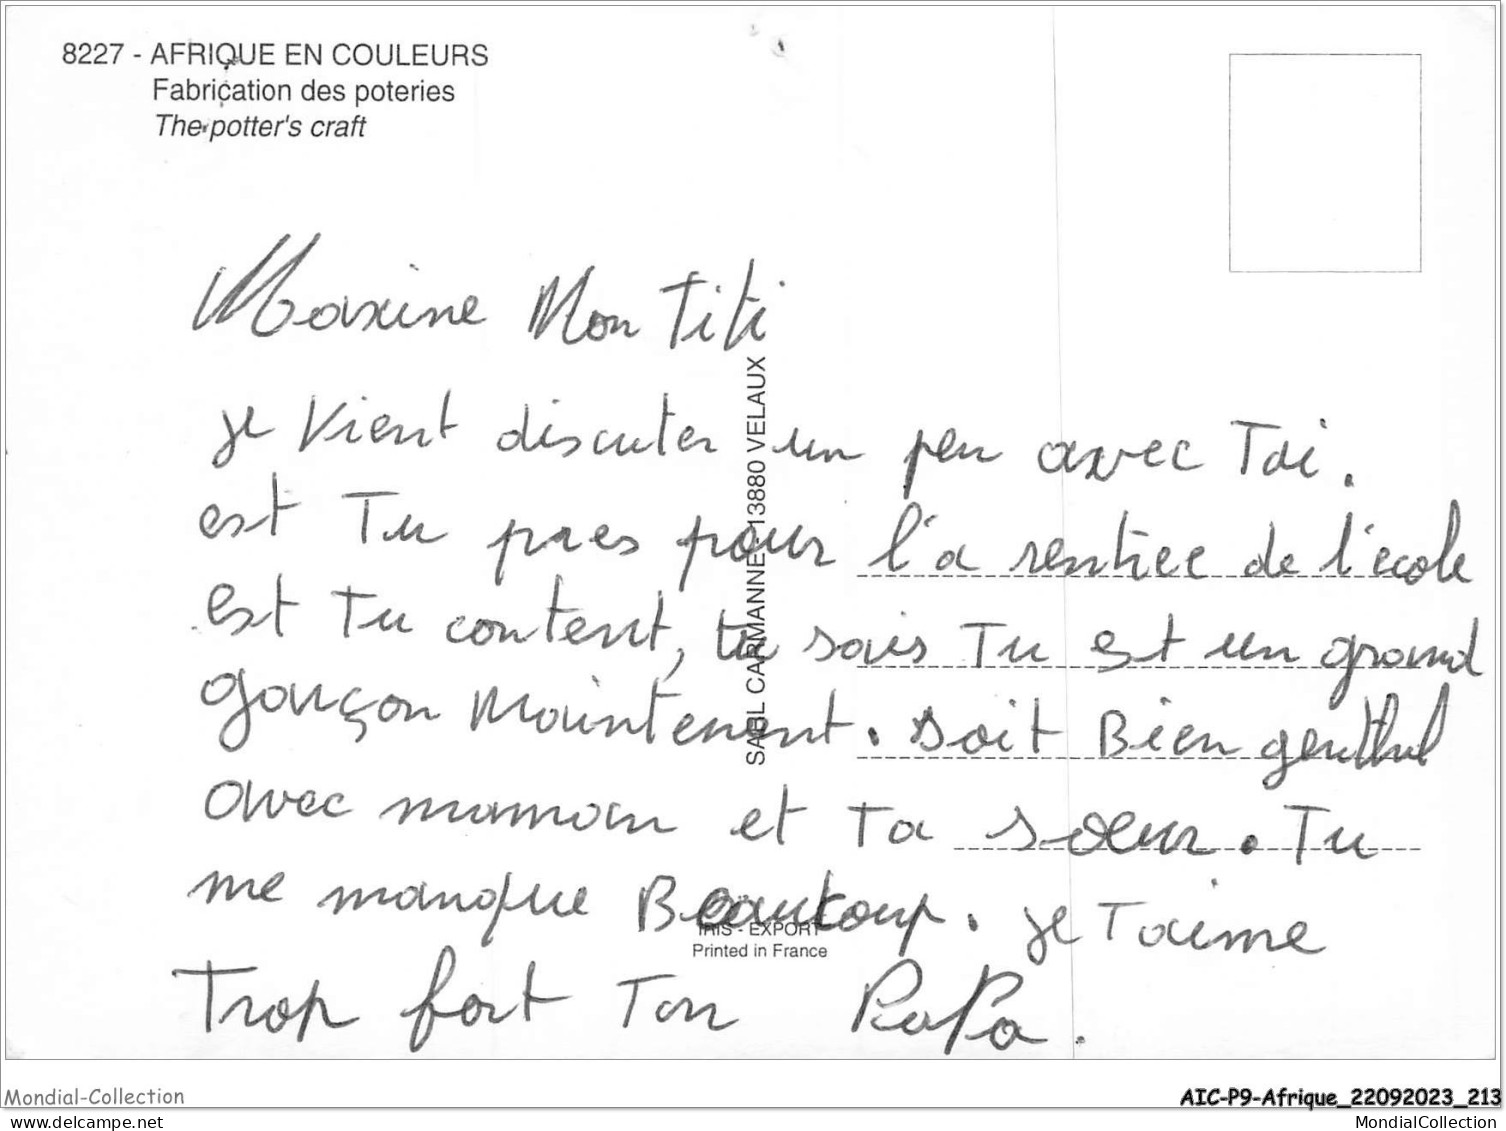 8227 - AFRIQUE EN COULEURS
Fabrication des poteries
The potter's craft
Maxime Mon Titi
je Vient discuter un peu avec Toi.
est Tu pres pour l'a rentree de l'école
est Tu content, tu sais Tu est un grand
garçon Maintenent. Soit Bien gentil
avec maman et Ta sœur. Tu
me manque Beaucoup. je T'aime
Trop fort Ton PaPa.
SARL CARMANNE 13880 VELAUX
IRIS - EXPORT
Printed in France
Mondial-Collection
AIC-P9-Afrique_22092023_213
www.delcampe.net
MondialCollection